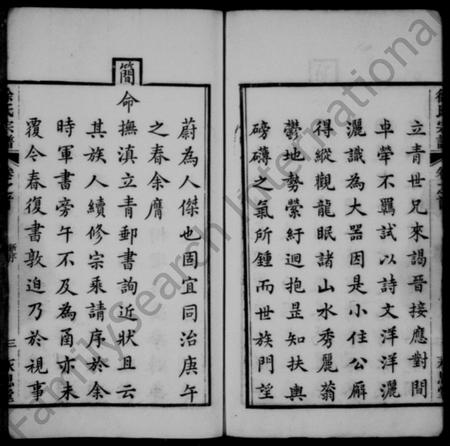 立青世兄來謁晉接應對間
卓犖不羈試以詩文洋洋灑
灑識為大器因是小住公廨
得縱觀龍眠諸山水秀麗蓊
鬱地勢縈紆迴抱昰知扶輿
磅礴之氣所鍾而世族門望
蔚為人傑也固宜同治庚午
之春余膺
簡命
撫滇立青郵書詢近狀且云
其族人續修宗乘請序於余
時軍書旁午不及為函亦未
覆今春復書敦迫乃於視事
FamilySearch International